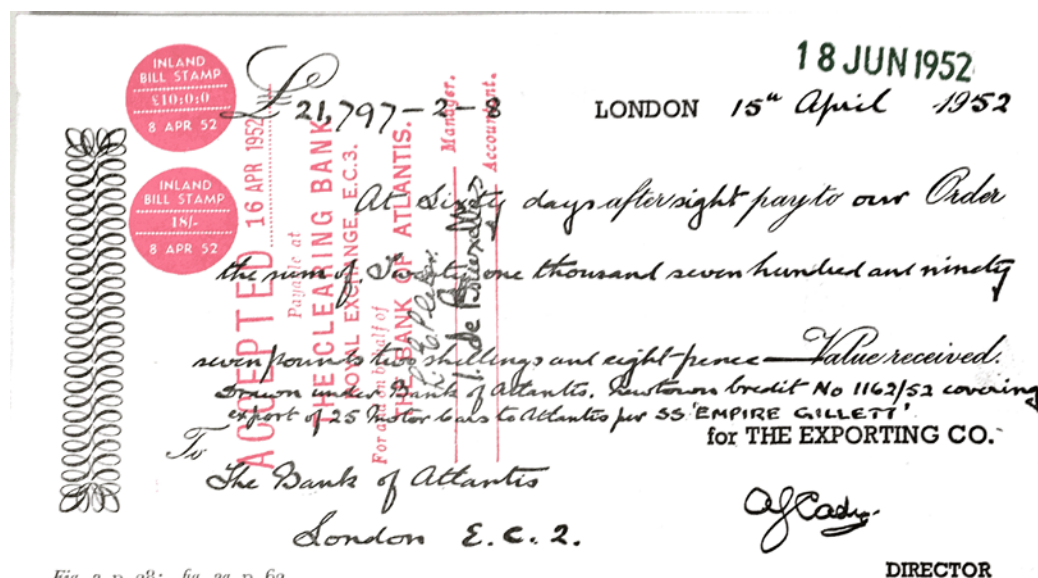 18 JUN 1952
INLAND
BILL STAMP
£10:0:0
8 APR 52
£ 21,797-2-8
LONDON 15th April 1952
INLAND
BILL STAMP
18/-
8 APR 52
At Sixty days after sight pay to our Order
the sum of Twenty one thousand seven hundred and ninety
seven pounds two shellings and eight pence — Value received.
Drawn under Bank of Atlantis, Newtown Credit No 1162/52 covering
export of 25 Motor Cars to Atlantis per SS 'EMPIRE GILLETT'
for THE EXPORTING CO.
To
The Bank of Atlantis
London E.C.2.
DIRECTOR
ACCEPTED 16 APR 1952
Payable at
THE CLEARING BANK
ROYAL EXCHANGE, E.C.3.
For and on behalf of
THE BANK OF ATLANTIS.
Manager.
Accountant.